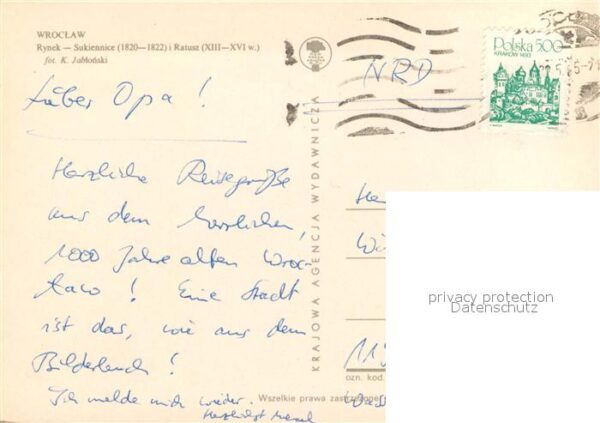 WROCŁAW
Rynek — Sukiennice (1820—1822) i Ratusz (XIII—XVI w.)
fot. K. Jabłoński
Polska 500
KRAKÓW 1493
NRD
Lieber Opa!
Herzliche Reisegrüße
aus dem herrlichen,
1000 Jahre alten Wroc-
ław! Eine Stadt
ist das, wie aus dem
Bilderbuch!
Ich melde mich wieder.
Herzlichst
KRAJOWA AGENCJA WYDAWNICZA
He
Wü
115
ozn. kod.
Wszelkie prawa zastrzeżone
privacy protection
Datenschutz